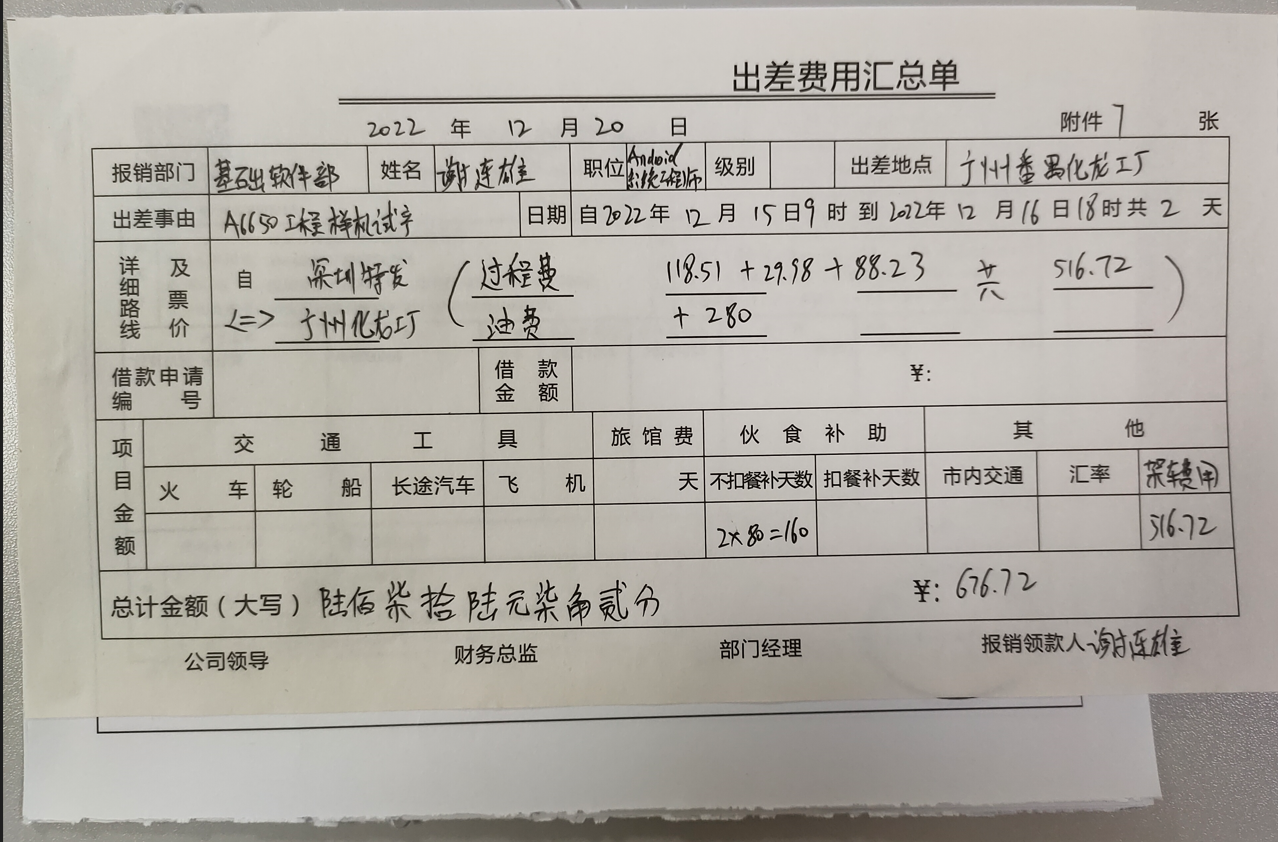 出差费用汇总单
2022 年 12 月 20 日 附件 7 张
报销部门 基础软件部 姓名 谢连雄 职位 Android系统工程师 级别 出差地点 广州番禺化龙工厂
出差事由 A6650工程样机试产 日期 自2022年 12 月 15日9 时 到 2022年 12 月 16 日18时共 2 天
详细路线及票价 自 深圳特发 ( 过程费 118.51 + 29.98 + 88.23 共 516.72 )
<=> 广州化龙工厂 油费 + 280
借款申请编号 借款金额 ¥:
项目金额 交通工具 旅馆费 伙食补助 其他
火车 轮船 长途汽车 飞机 天 不扣餐补天数 扣餐补天数 市内交通 汇率 驾车费用
2×80=160 516.72
总计金额(大写) 陆佰柒拾陆元柒角贰分 ¥: 676.72
公司领导 财务总监 部门经理 报销领款人 谢连雄